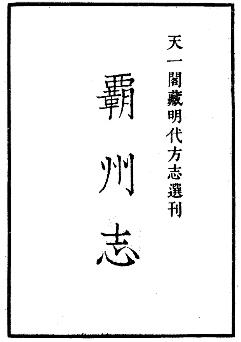 天一閣藏明代方志選刊
覇州志